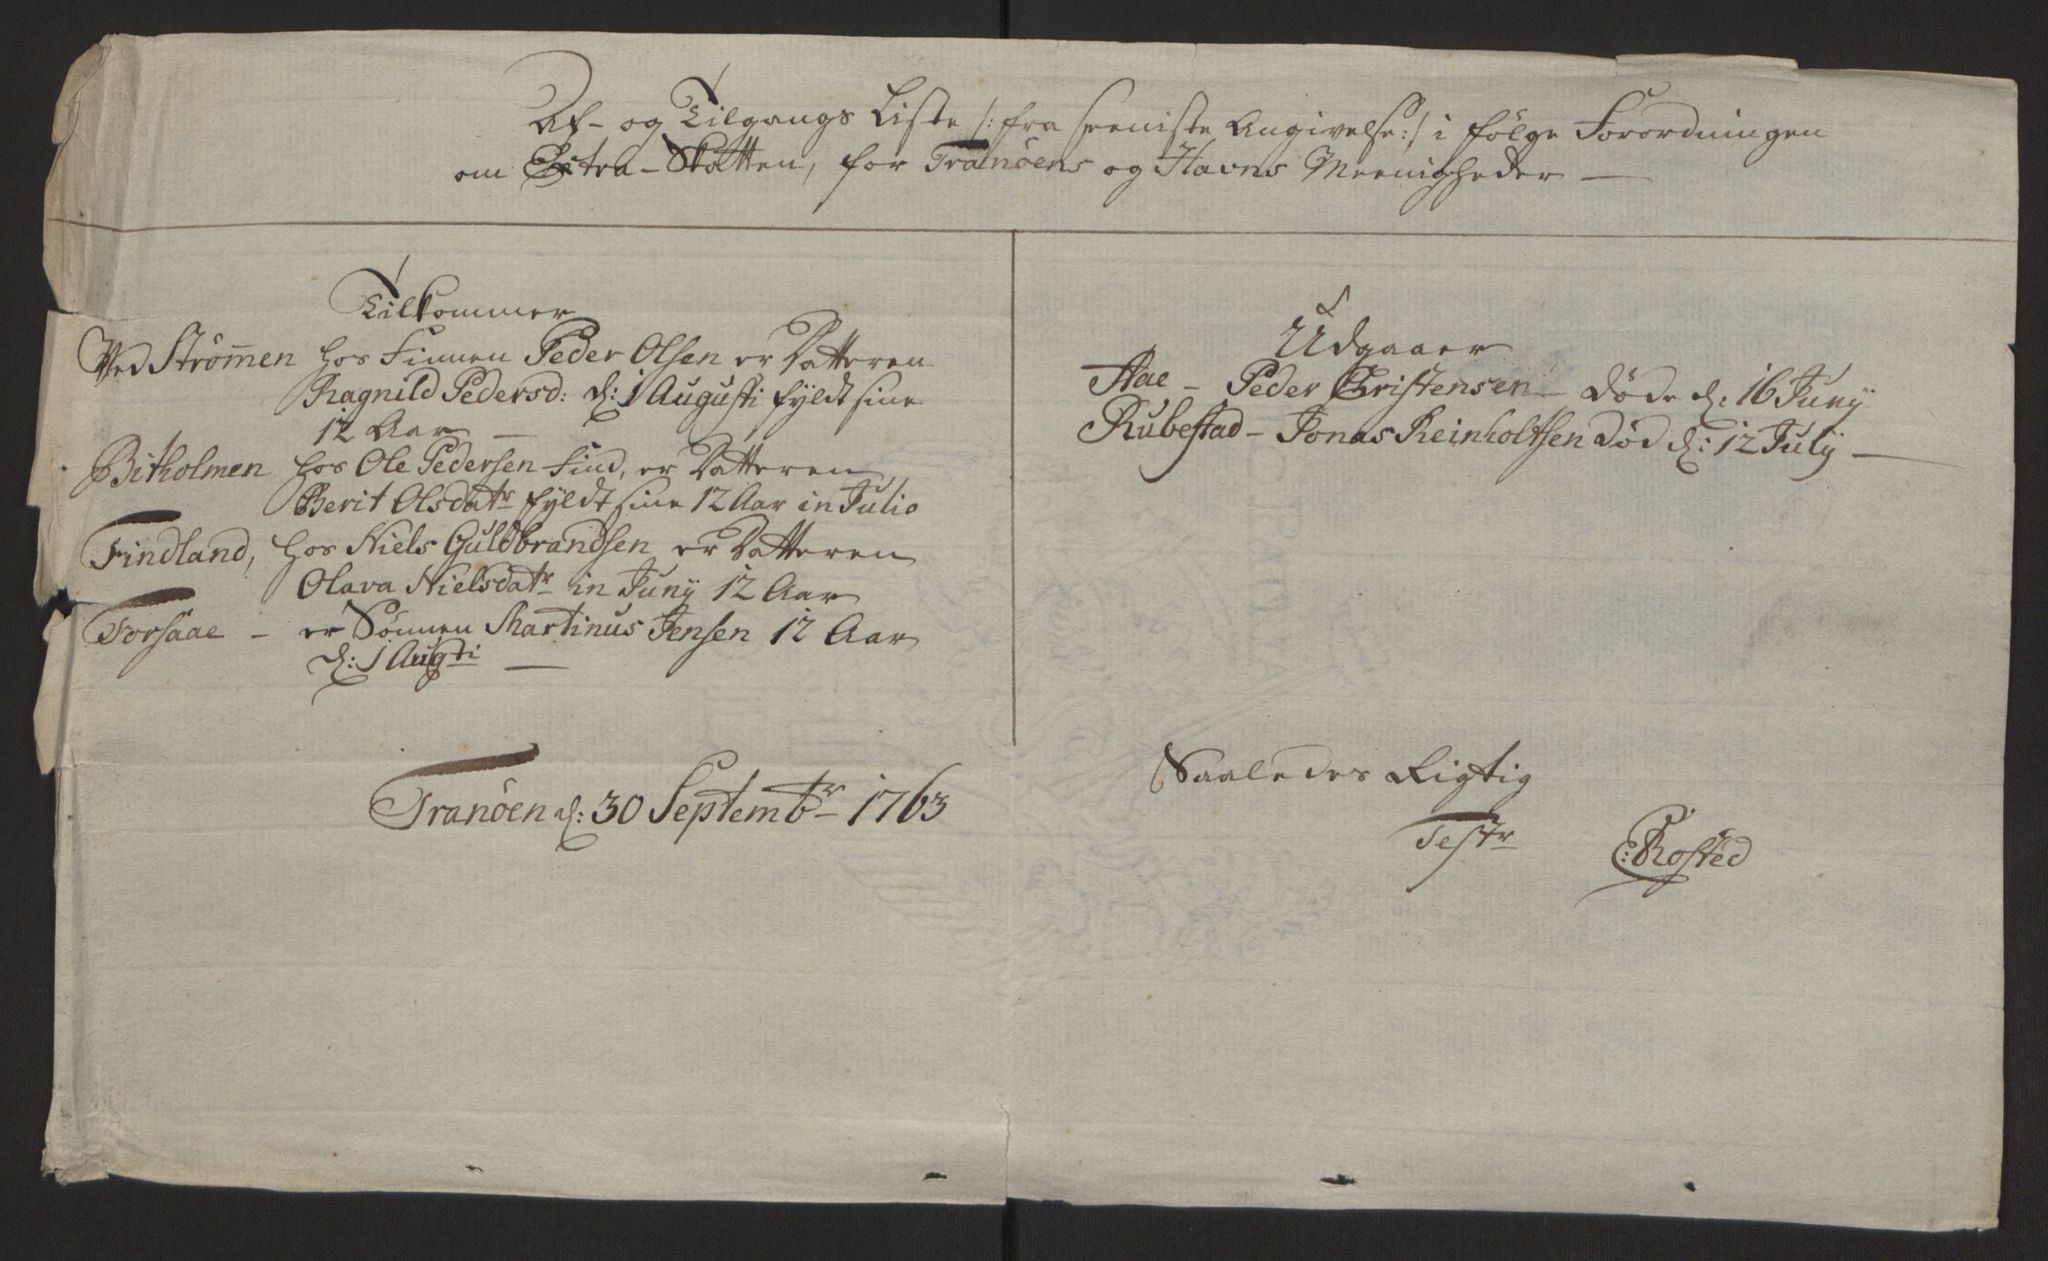 Af- og Tilgangs Liste /: fra seeniste Angivelse :/ i følge Forordningen
om Extra-Skatten, for Tranöens og Havns Meenigheder —
Tilkommer
Ved Strömen hos Finnen Peder Olsen er Datteren
Ragnild Pedersd: d: 1 Augusti fyldt sine
12 Aar —
Bitholmen hos Ole Pedersen Find, er Datteren
Berit Olsdatr fyldt sine 12 Aar in Julio
Findland, hos Niels Guldbrandsen er Datteren
Olava Nielsdatr in Juny 12 Aar
Torsaae - er Sönnen Martinus Jensen 12 Aar
d: 1 Augsti —
Udgaaer
Aae - Peder Christensen - døde d: 16 Juny
Rubestad - Jonas Reinholtsen død d: 12 July —
Tranöen d: 30 Septembr 1763
Saaledes Rigtig
Testr
E: Rosted